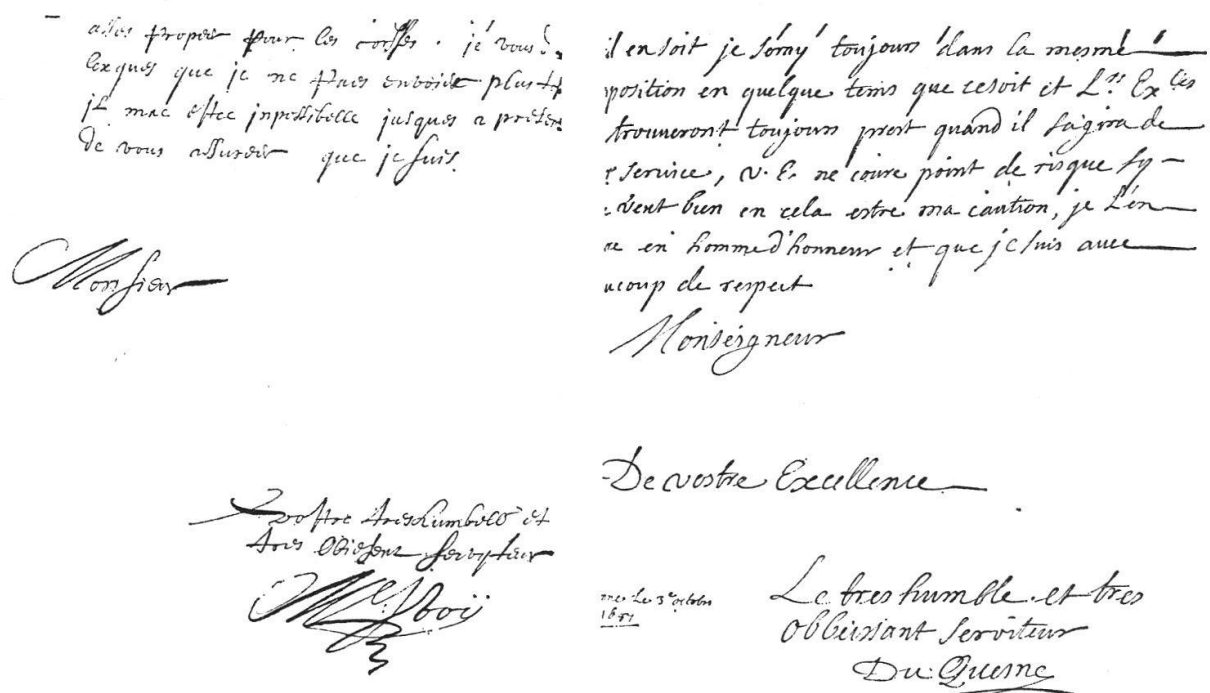 asses propres pour les coffes. je vous
lexques que je ne puies envoïer plus
il mac estee inpossibelle jusques a
de vous assurer que je suis
Monsieur
vostre tres humbele et
tres obiesent serviteur
il en soit je seray toujours dans la mesme
position en quelque tems que ce soit et L.rs Ex.ces
trouveront toujours prest quand il s'agira de
service, v. E. ne coure point de risque sy
vent bien en cela estre ma caution, je L'en
en homme d'honneur et que je suis avec
ucoup de respect
Monseigneur
De vostre Excellence
Le 3e octobre
Le tres humble et tres
Obbeissant serviteur
Du Quesne